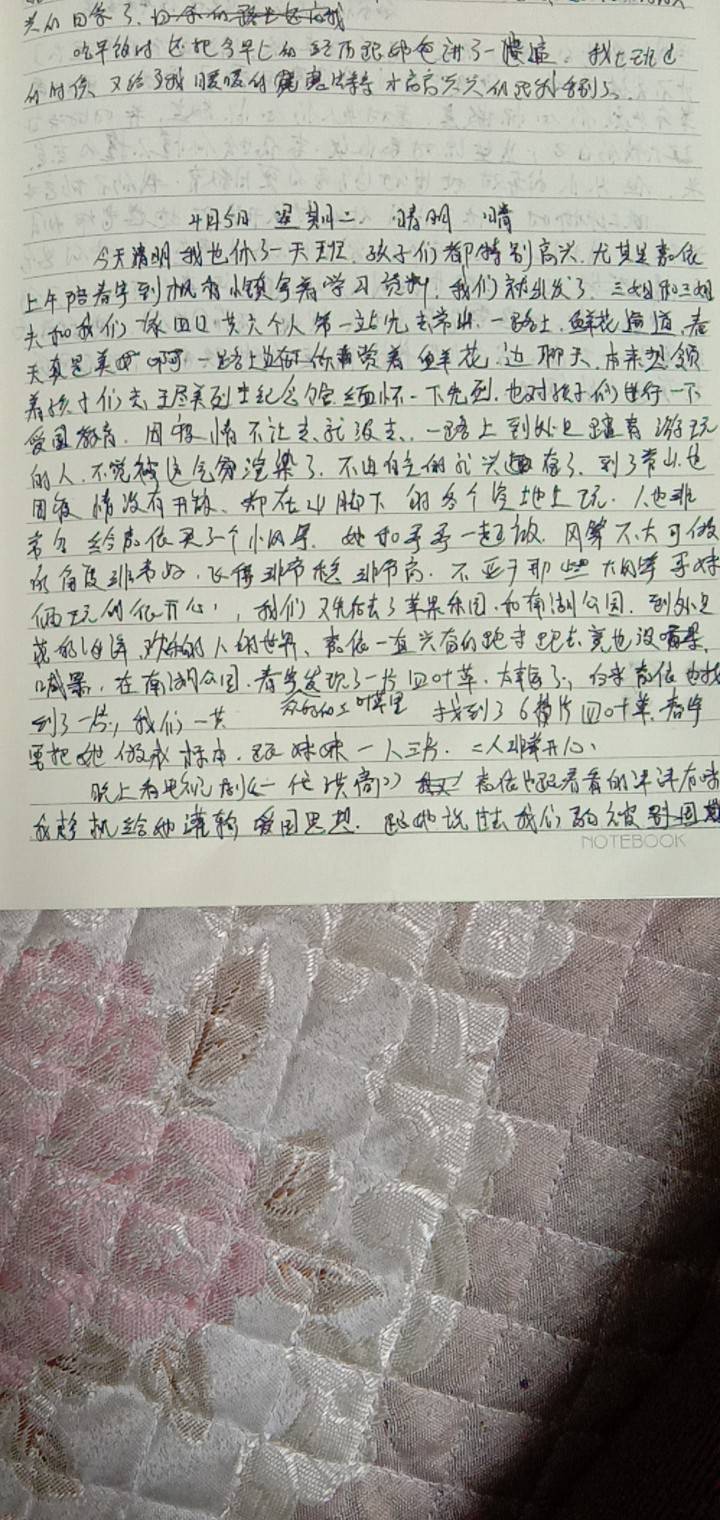 的回家了
吃早饭时还把今早上的经历跟都讲了一遍。我上班
的时候又给了我暖暖的才高高兴兴的
4月5日 星期二 清明 晴
今天清明我也休了一天班，孩子们都特别高兴，尤其是嘉依
上午陪着宇到枫香小镇拿着学习资料，我们就出发了，三姐和三姐
夫和我们家四口共六个人第一站先去常山，一路上，鲜花遍道，春
天真是美啊一路上边欣赏着鲜花，边聊天，本来想领
着孩子们去王尽美烈士纪念馆缅怀一下先烈，也对孩子们进行一下
爱国教育，因疫情不让去，就没去，一路上到处是踏青游玩
的人，不觉被这气氛渲染了，不由自主的兴趣有了，到了常山也
因疫情没有开放，都在山脚下的各个空地上玩，人也非
常多给嘉依买了一个小风筝，她和哥哥一起放，风筝不大可做
的角度非常好，飞得非常稳非常高，不亚于那些大风筝哥妹
俩玩的很开心，我们又先后去了苹果乐园和南湖公园，到处是
花的海洋，的人的世界，嘉依一直兴奋的跑去竟也没
喊累，在南湖公园，春宇发现了一片四叶草，太幸运了，后来嘉依也找
到了一片，我们一共众多的三叶草里找到了6片四叶草，春宇
要把她做成标本，跟妹妹一人三片，二人非常开心
晚上看电视剧《一代洪商》嘉依也跟着看的津津有味
我趁机给她灌输爱国思想，跟她说过去我们的被
NOTEBOOK